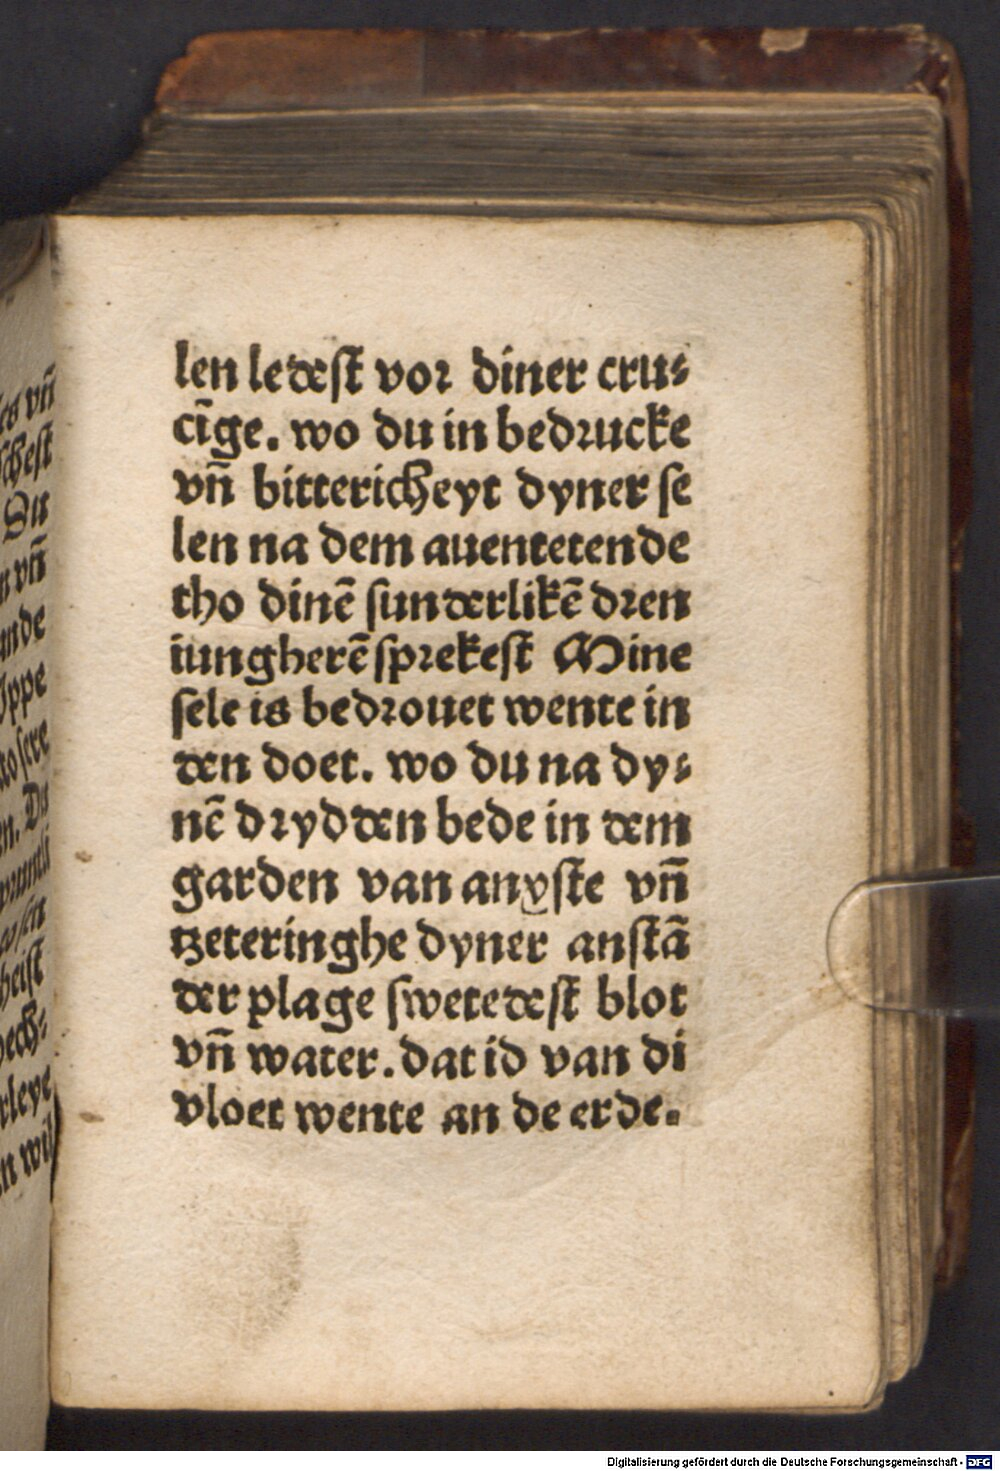 len ledeſt vor diner cru⸗
cīge. wo du in bedrucke
vn̄ bittericheyt dyner ſe
len na dem auentetende
tho dinē ſunderlikē dren
iungherē ſprekeſt Mine
ſele is bedrouet wente in
den doet. wo du na dy⸗
nē drydden bede in dem
garden van anxſte vn̄
tzeteringhe dyner anſtā
der plage ſwetedeſt blot
vn̄ water. dat id van di
vloet wente an de erde.
es vn̄
ſcheſt
Du
n vn̄
ande
to ſere
en. Da
heiſt
rleye
n wil
Digitalisierung gefördert durch die Deutsche Forschungsgemeinschaft - DFG